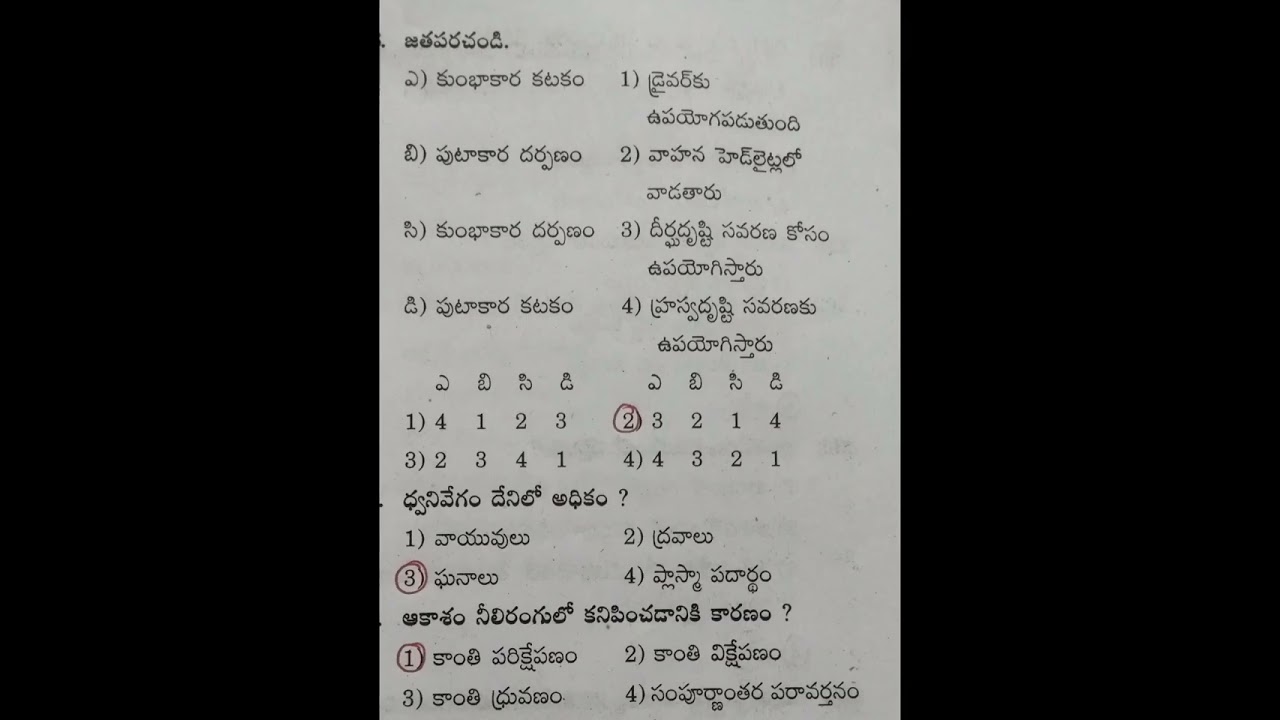 . జతపరచండి.
ఎ) కుంభాకార కటకం 1) డ్రైవర్‌కు
ఉపయోగపడుతుంది
బి) పుటాకార దర్పణం 2) వాహన హెడ్‌లైట్లలో
వాడతారు
సి) కుంభాకార దర్పణం 3) దీర్ఘదృష్టి సవరణ కోసం
ఉపయోగిస్తారు
డి) పుటాకార కటకం 4) హ్రస్వదృష్టి సవరణకు
ఉపయోగిస్తారు
ఎ బి సి డి ఎ బి సి డి
1) 4 1 2 3 2) 3 2 1 4
3) 2 3 4 1 4) 4 3 2 1
. ధ్వనివేగం దేనిలో అధికం ?
1) వాయువులు 2) ద్రవాలు
3) ఘనాలు 4) ప్లాస్మా పదార్థం
. ఆకాశం నీలిరంగులో కనిపించడానికి కారణం ?
1) కాంతి పరిక్షేపణం 2) కాంతి విక్షేపణం
3) కాంతి ధ్రువణం 4) సంపూర్ణాంతర పరావర్తనం